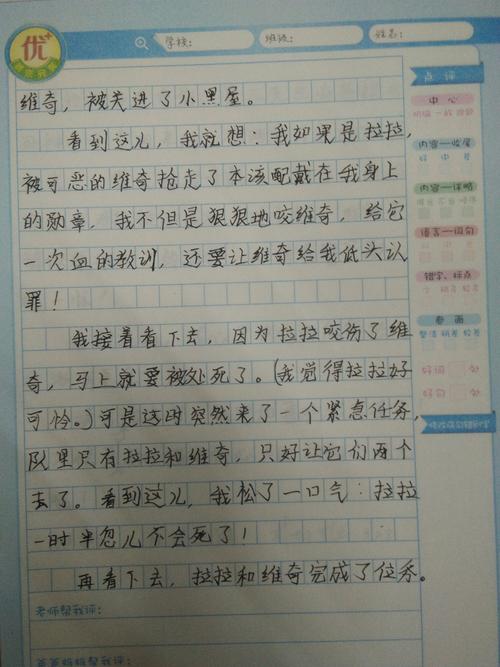 优+
学校:
班级:
姓名:
点评
中心
内容—收尾
好 中 差
内容—详略
语言—词句
错字、标点
卷面
好词 处
好句 处
维奇，被关进了小黑屋。
看到这儿，我就想：我如果是拉拉，
被可恶的维奇抢走了本该配戴在我身上
的勋章，我不但是狠狠地咬维奇，给它
一次血的教训，还要让维奇给我低头认
罪！
我接着看下去，因为拉拉咬伤了维
奇，马上就要被处死了。(我觉得拉拉好
可怜。)可是这时突然来了一个紧急任务，
队里只有拉拉和维奇，只好让它们两个
去了。看到这儿，我松了一口气：拉拉
一时半忽儿不会死了！
再看下去，拉拉和维奇完成了任务。
老师帮我评:
爸爸妈妈帮我评: